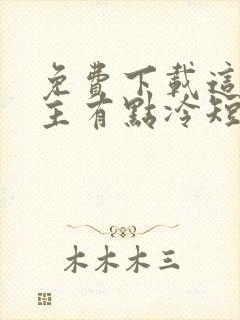 免費下載這
主有點冷短
木木木三